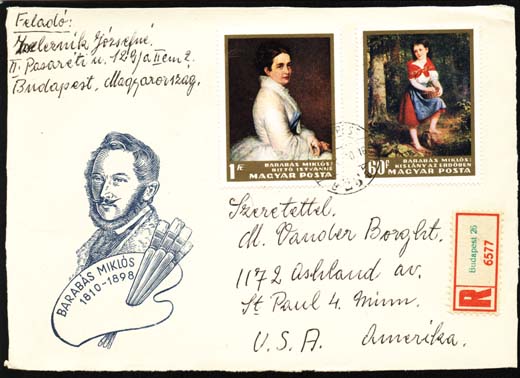 Feladó:
Zelernik Józsefné.
II. Pasaréti u. 129/a II em 2.
Budapest, Magyarország.
BARABÁS MIKLÓS:
BITTÓ ISTVÁNNÉ
1 Ft MAGYAR POSTA
BARABÁS MIKLÓS:
KISLÁNY AZ ERDŐBEN
60f MAGYAR POSTA
BARABÁS MIKLÓS
1810-1898
Szeretettel.
M. Vander Borght.
1172 Ashland av.
St Paul 4. Minn.
U. S. A. Amerika.
R
Budapest 26
6577